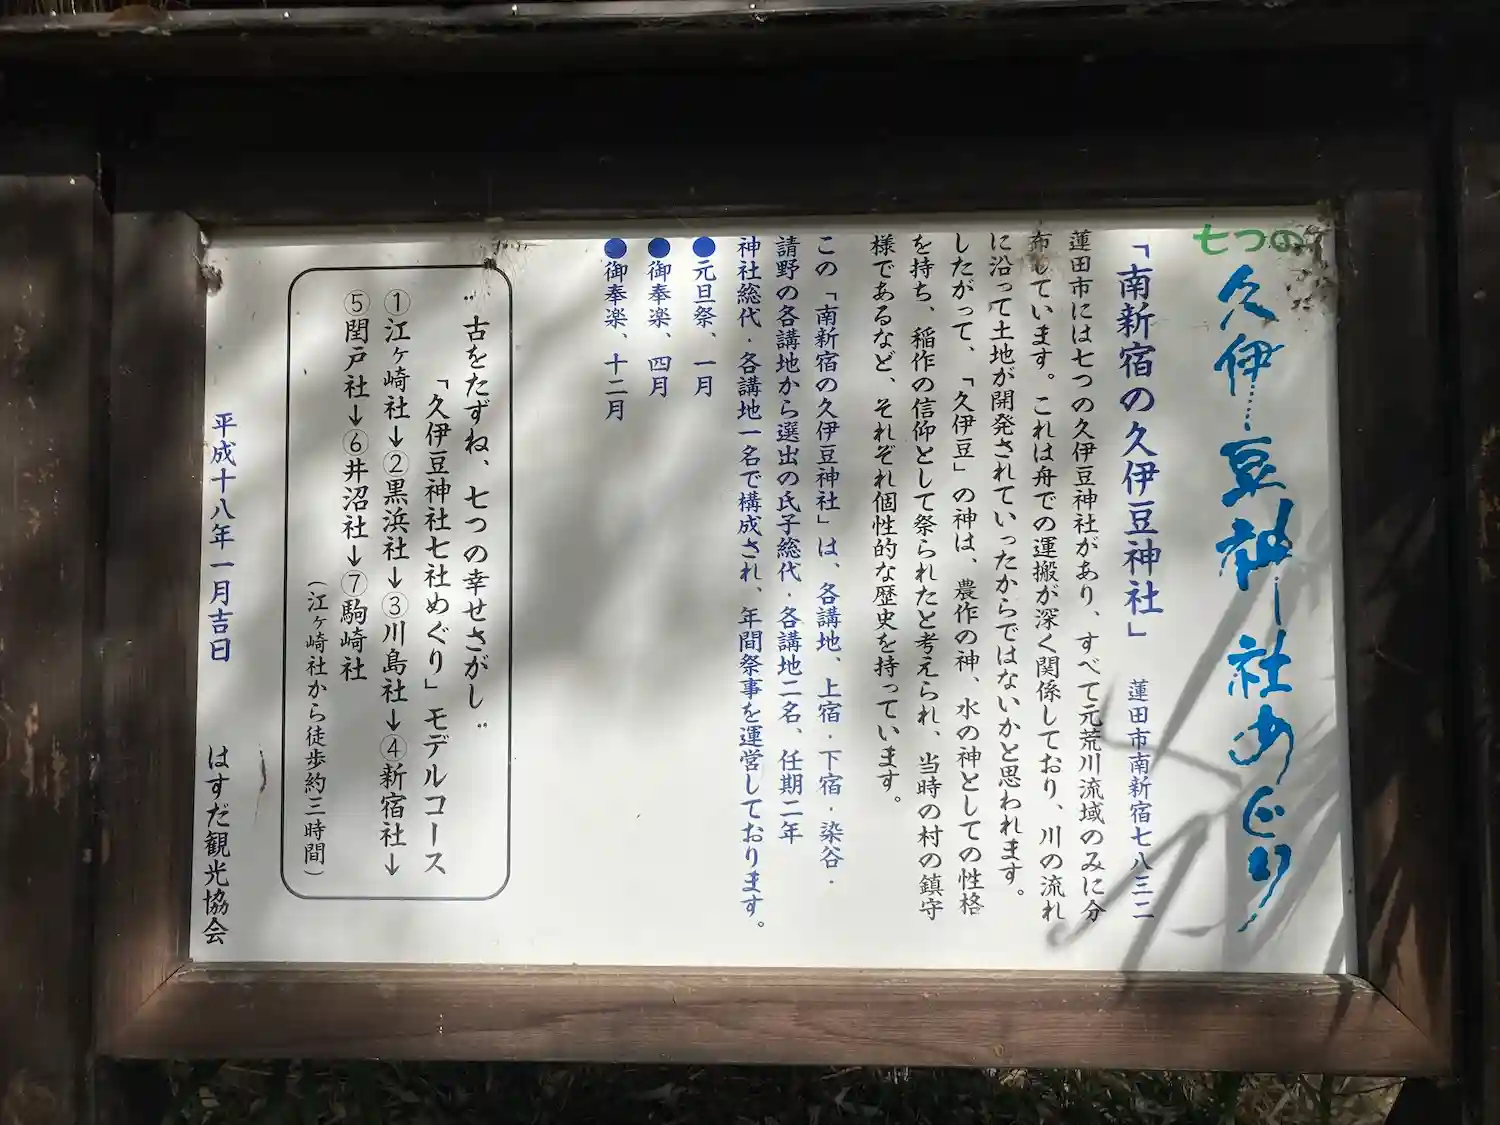 七つの
久伊豆神社めぐり
「南新宿の久伊豆神社」 蓮田市南新宿七八三二
蓮田市には七つの久伊豆神社があり、すべて元荒川流域のみに分
布しています。これは舟での運搬が深く関係しており、川の流れ
に沿って土地が開発されていったからではないかと思われます。
したがって、「久伊豆」の神は、農作の神、水の神としての性格
を持ち、稲作の信仰として祭られたと考えられ、当時の村の鎮守
様であるなど、それぞれ個性的な歴史を持っています。
この「南新宿の久伊豆神社」は、各講地、上宿・下宿・染谷・
請野の各講地から選出の氏子総代・各講地二名、任期二年
神社総代・各講地一名で構成され、年間祭事を運営しております。
●元旦祭、一月
●御奉楽、四月
●御奉楽、十二月
〝古をたずね、七つの幸せさがし〟
「久伊豆神社七社めぐり」モデルコース
①江ヶ崎社→②黒浜社→③川島社→④新宿社→
⑤閏戸社→⑥井沼社→⑦駒崎社
(江ヶ崎社から徒歩約三時間)
平成十八年一月吉日 はすだ観光協会